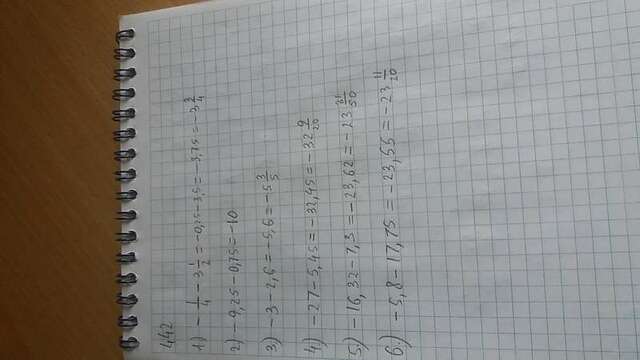 442
1) - 1/4 - 3 1/2 = -0,25 - 3,5 = -3,75 = -3 3/4
2) - 9,25 - 0,75 = -10
3) - 3 - 2,6 = -5,6 = -5 3/5
4) - 27 - 5,45 = -32,45 = -32 9/20
5) - 16,32 - 7,3 = -23,62 = -23 31/50
6) - 5,8 - 17,75 = -23,55 = -23 11/20